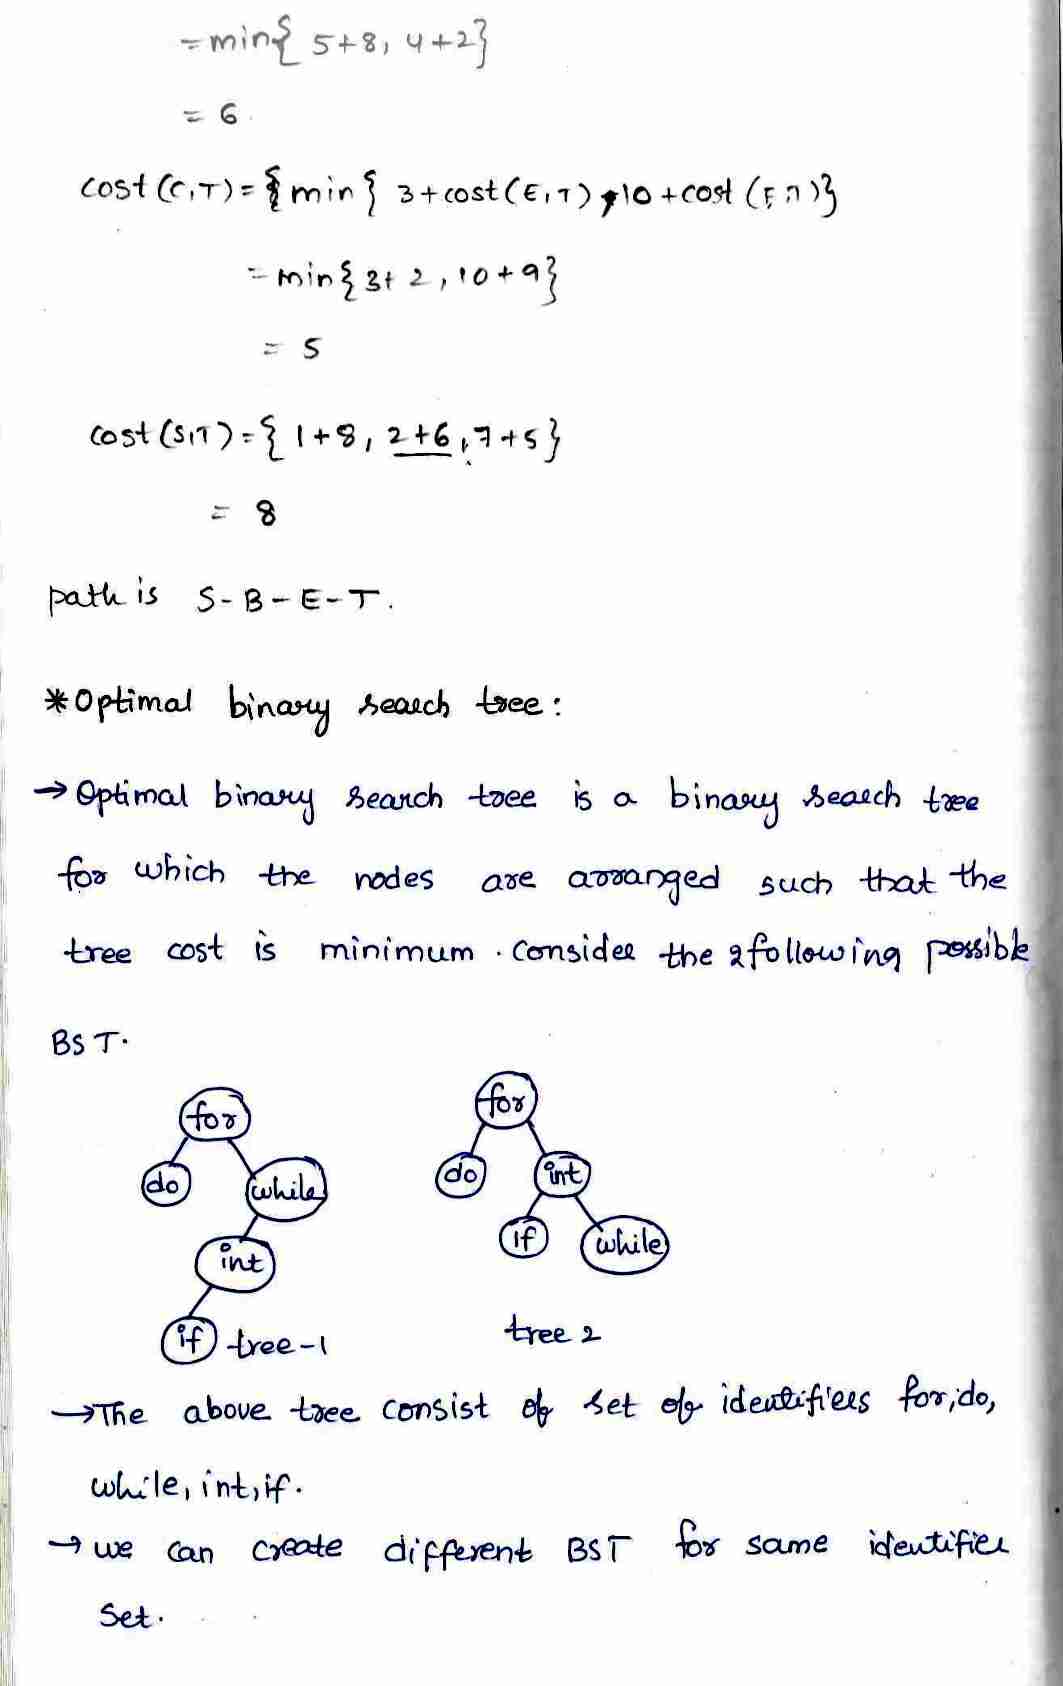 = min{ 5+8, 4+2}
= 6
cost (C,T) = { min { 3+cost(E,T), 10 +cost (F,T)}
= min{ 3+ 2, 10 + 9}
= 5
cost (S,T) = { 1+8, 2+6, 7+5}
= 8
path is S-B-E-T.
*Optimal binary search tree:
→ Optimal binary search tree is a binary search tree
for which the nodes are arranged such that the
tree cost is minimum. Consider the 2 following possible
BST.
for for
do while do int
int if while
if tree-1 tree 2
→ The above tree consist of set of identifiers for, do,
while, int, if.
→ we can create different BST for same identifier
Set.